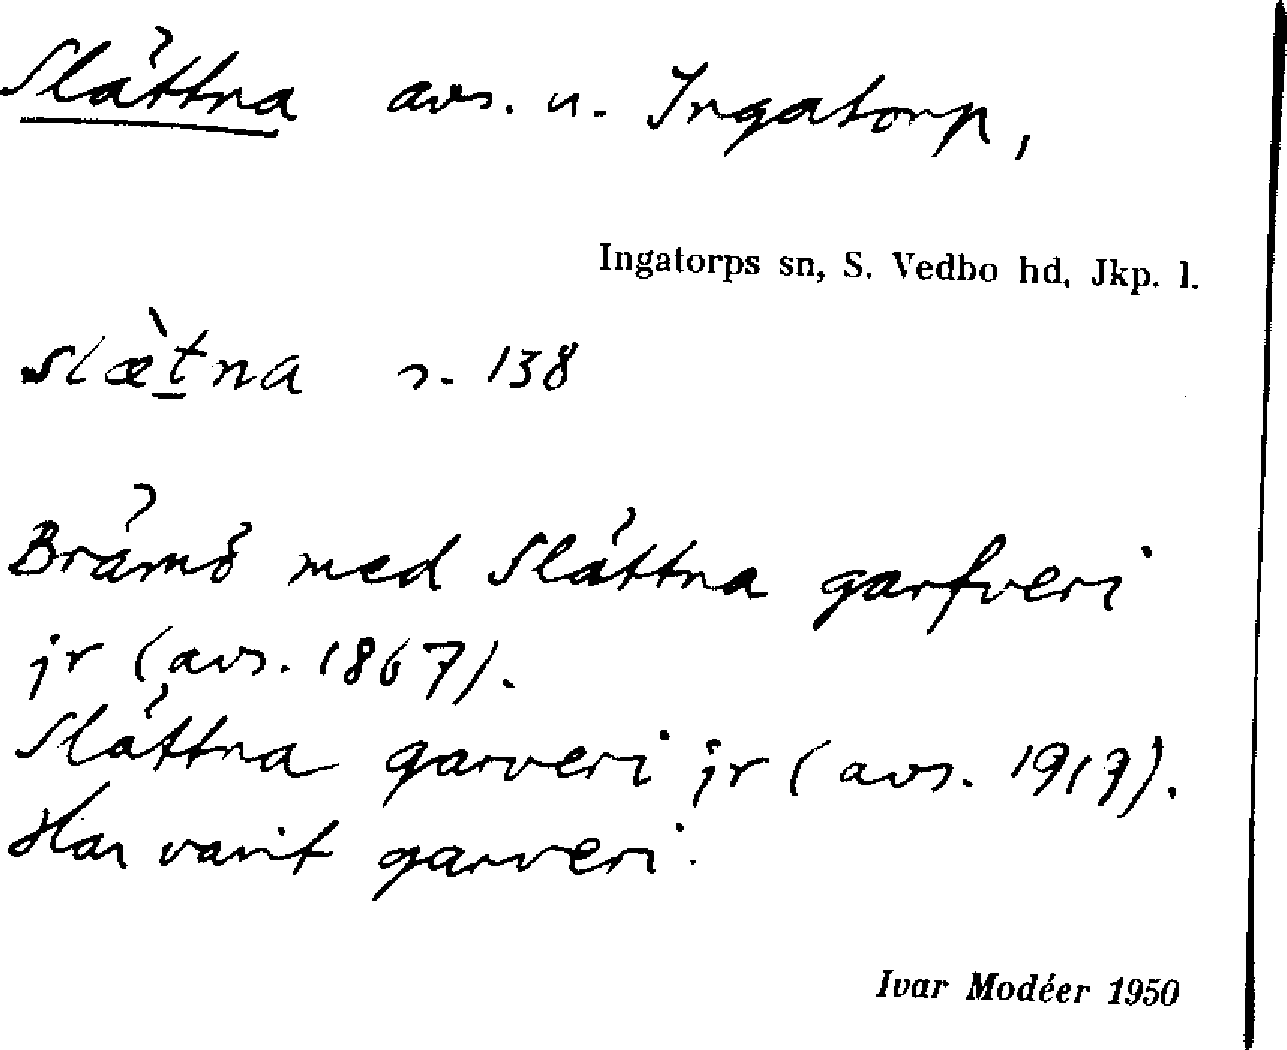 Slättna avs. u. Ingatorp,
Ingatorps sn, S. Vedbo hd, Jkp. l.
slæ̀ṯna s. 138
Brämö med Slättna garfveri
jr (avs. 1867).
Slättna garveri jr (avs. 1917).
Har varit garveri.
Ivar Modéer 1950